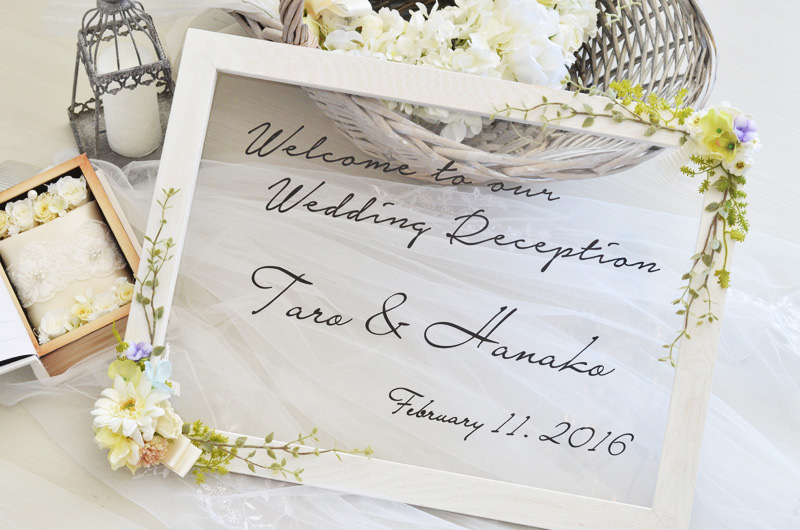 Welcome to our
Wedding Reception
Taro & Hanako
February 11. 2016